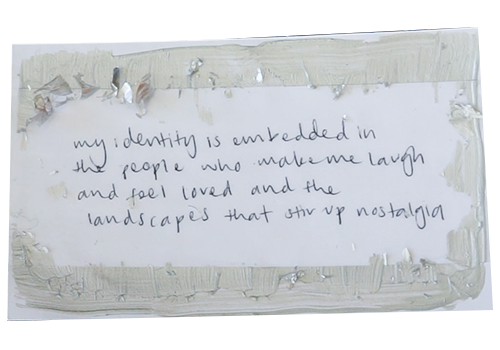 my identity is embedded in
the people who make me laugh
and feel loved and the
landscapes that stir up nostalgia